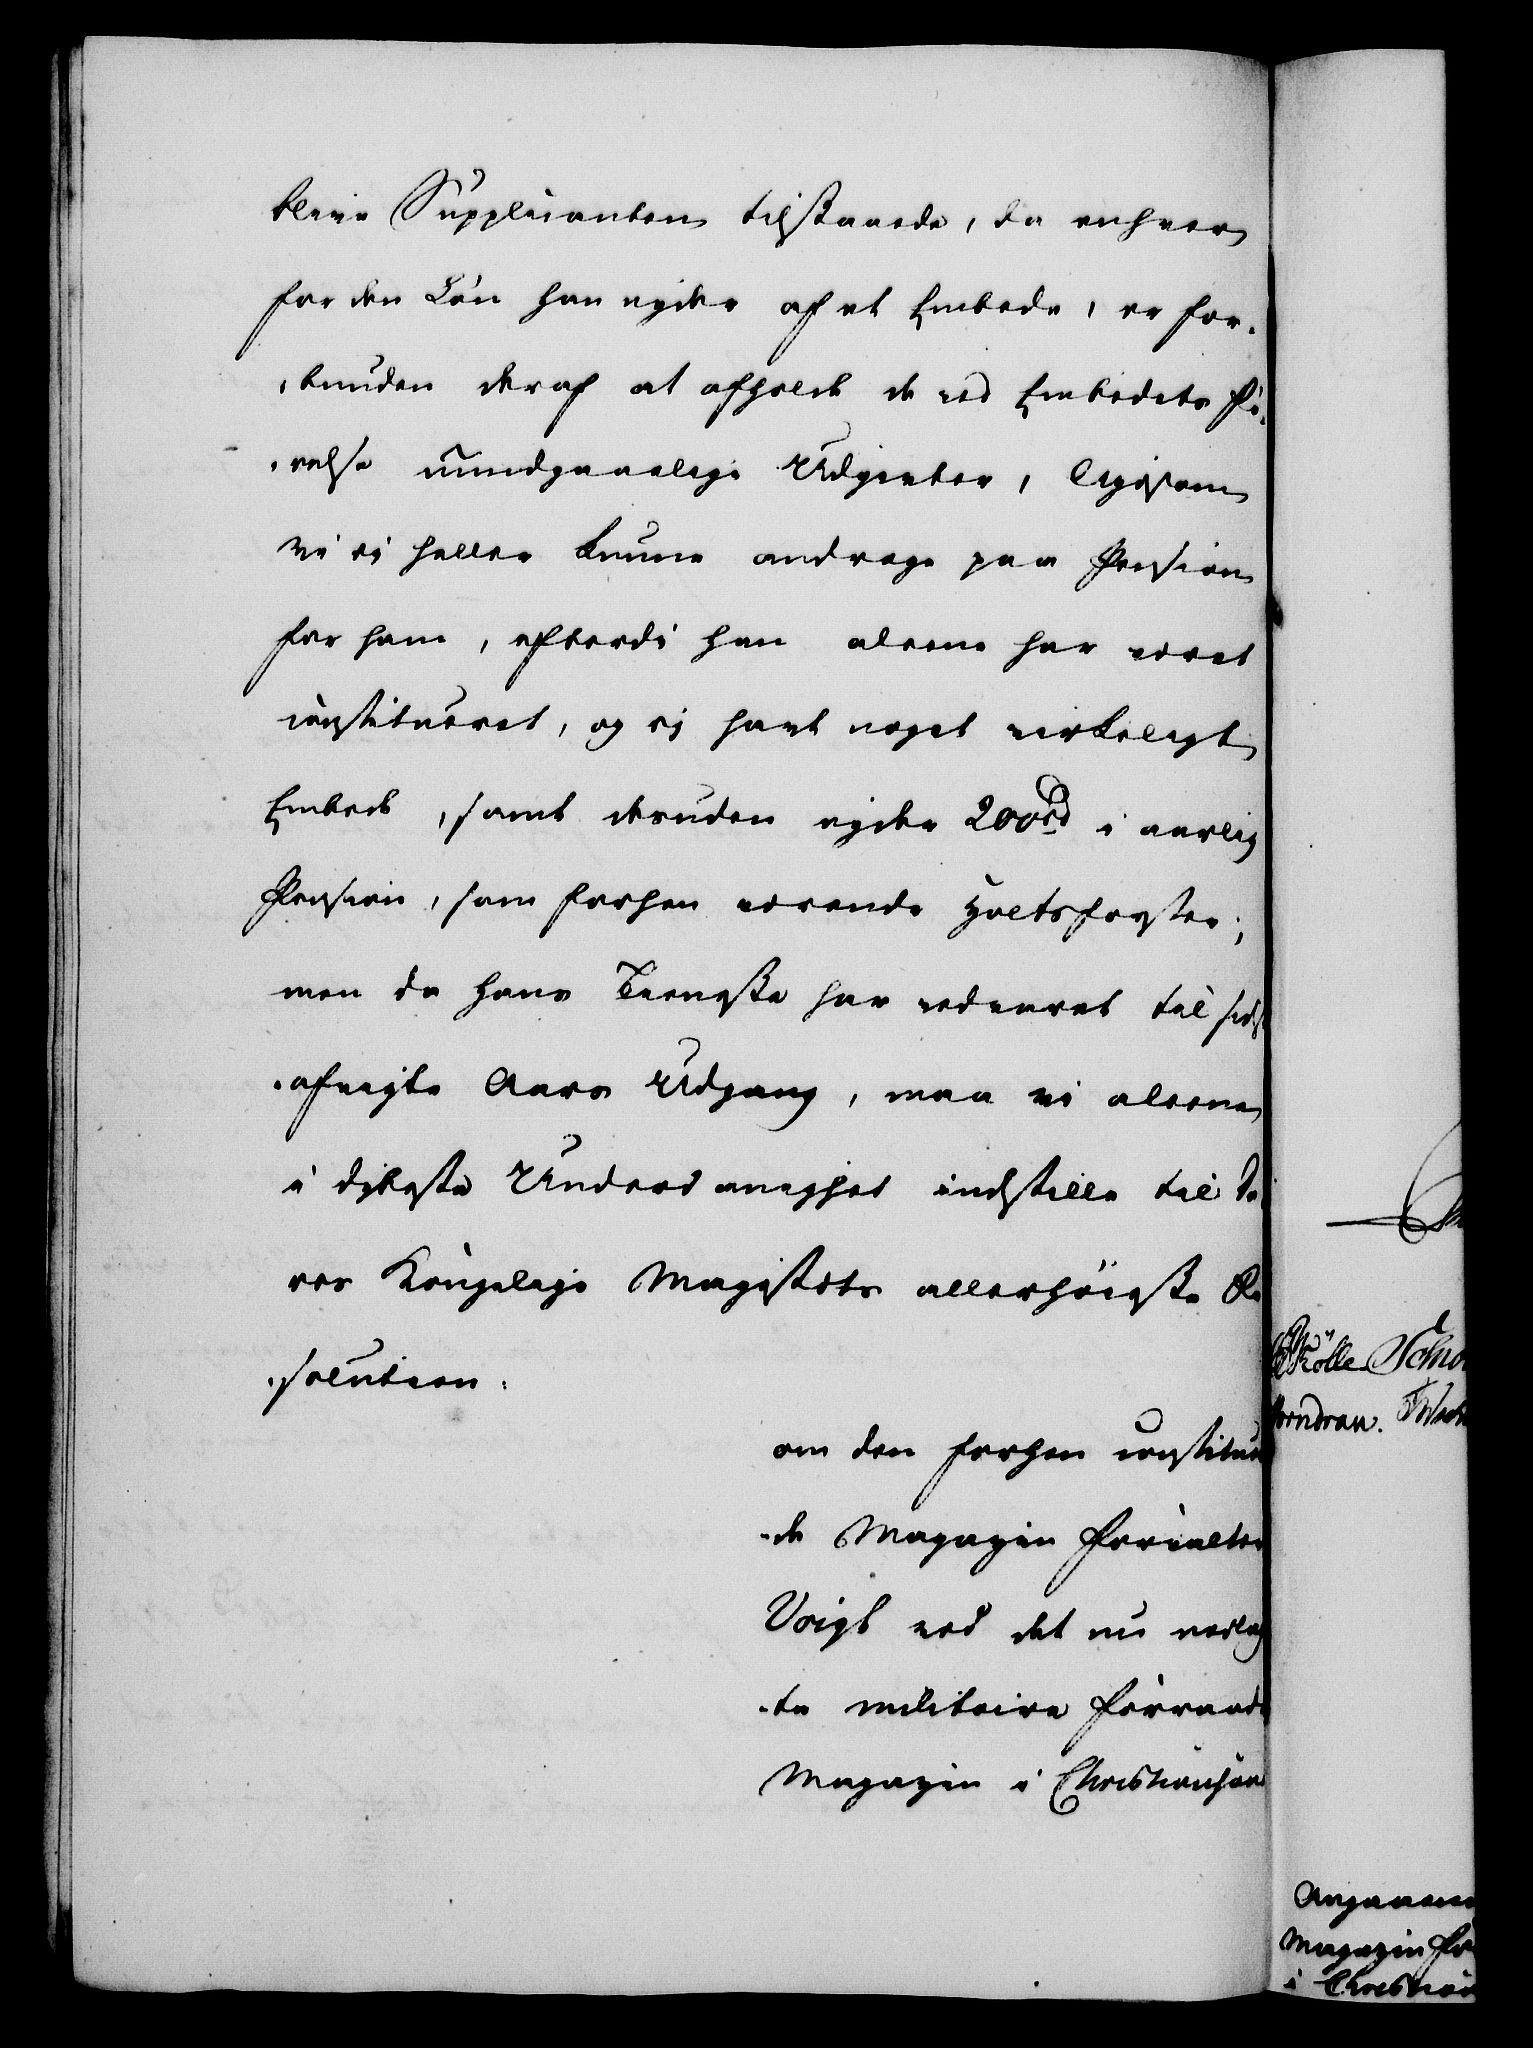 blive Supplicanten tilstaaede, da enhver
for den Lön han nyder af et Embede, er for¬
¬bunden deraf at afholde de ved Embedets Fö¬
¬relse uundgaaelige Udgivter, ligesom
vi ej heller kunne andrage paa Pension
for ham, efterdi han aleene har været
constitueret, og ej havt noget virkeligt
Embede, samt desuden nyder 200 rd i aarlig
Pension, som forhen værende Holtzforster;
men da hans Tieneste har vedvaret til sidst
¬afvigte Aars Udgang, maa vi aleene
i dybeste Underdanighed indstille til De
res Kongelige Majestæts allerhöieste Re
¬solution:
om den forhen constituere
¬de Magazin Forvalter
Voigt ved det nu nedlag
¬te militaire Forraads
Magazin i Christiansand
Kölle Schow
Wendran.
Angaaen
Magazin For
i Christian